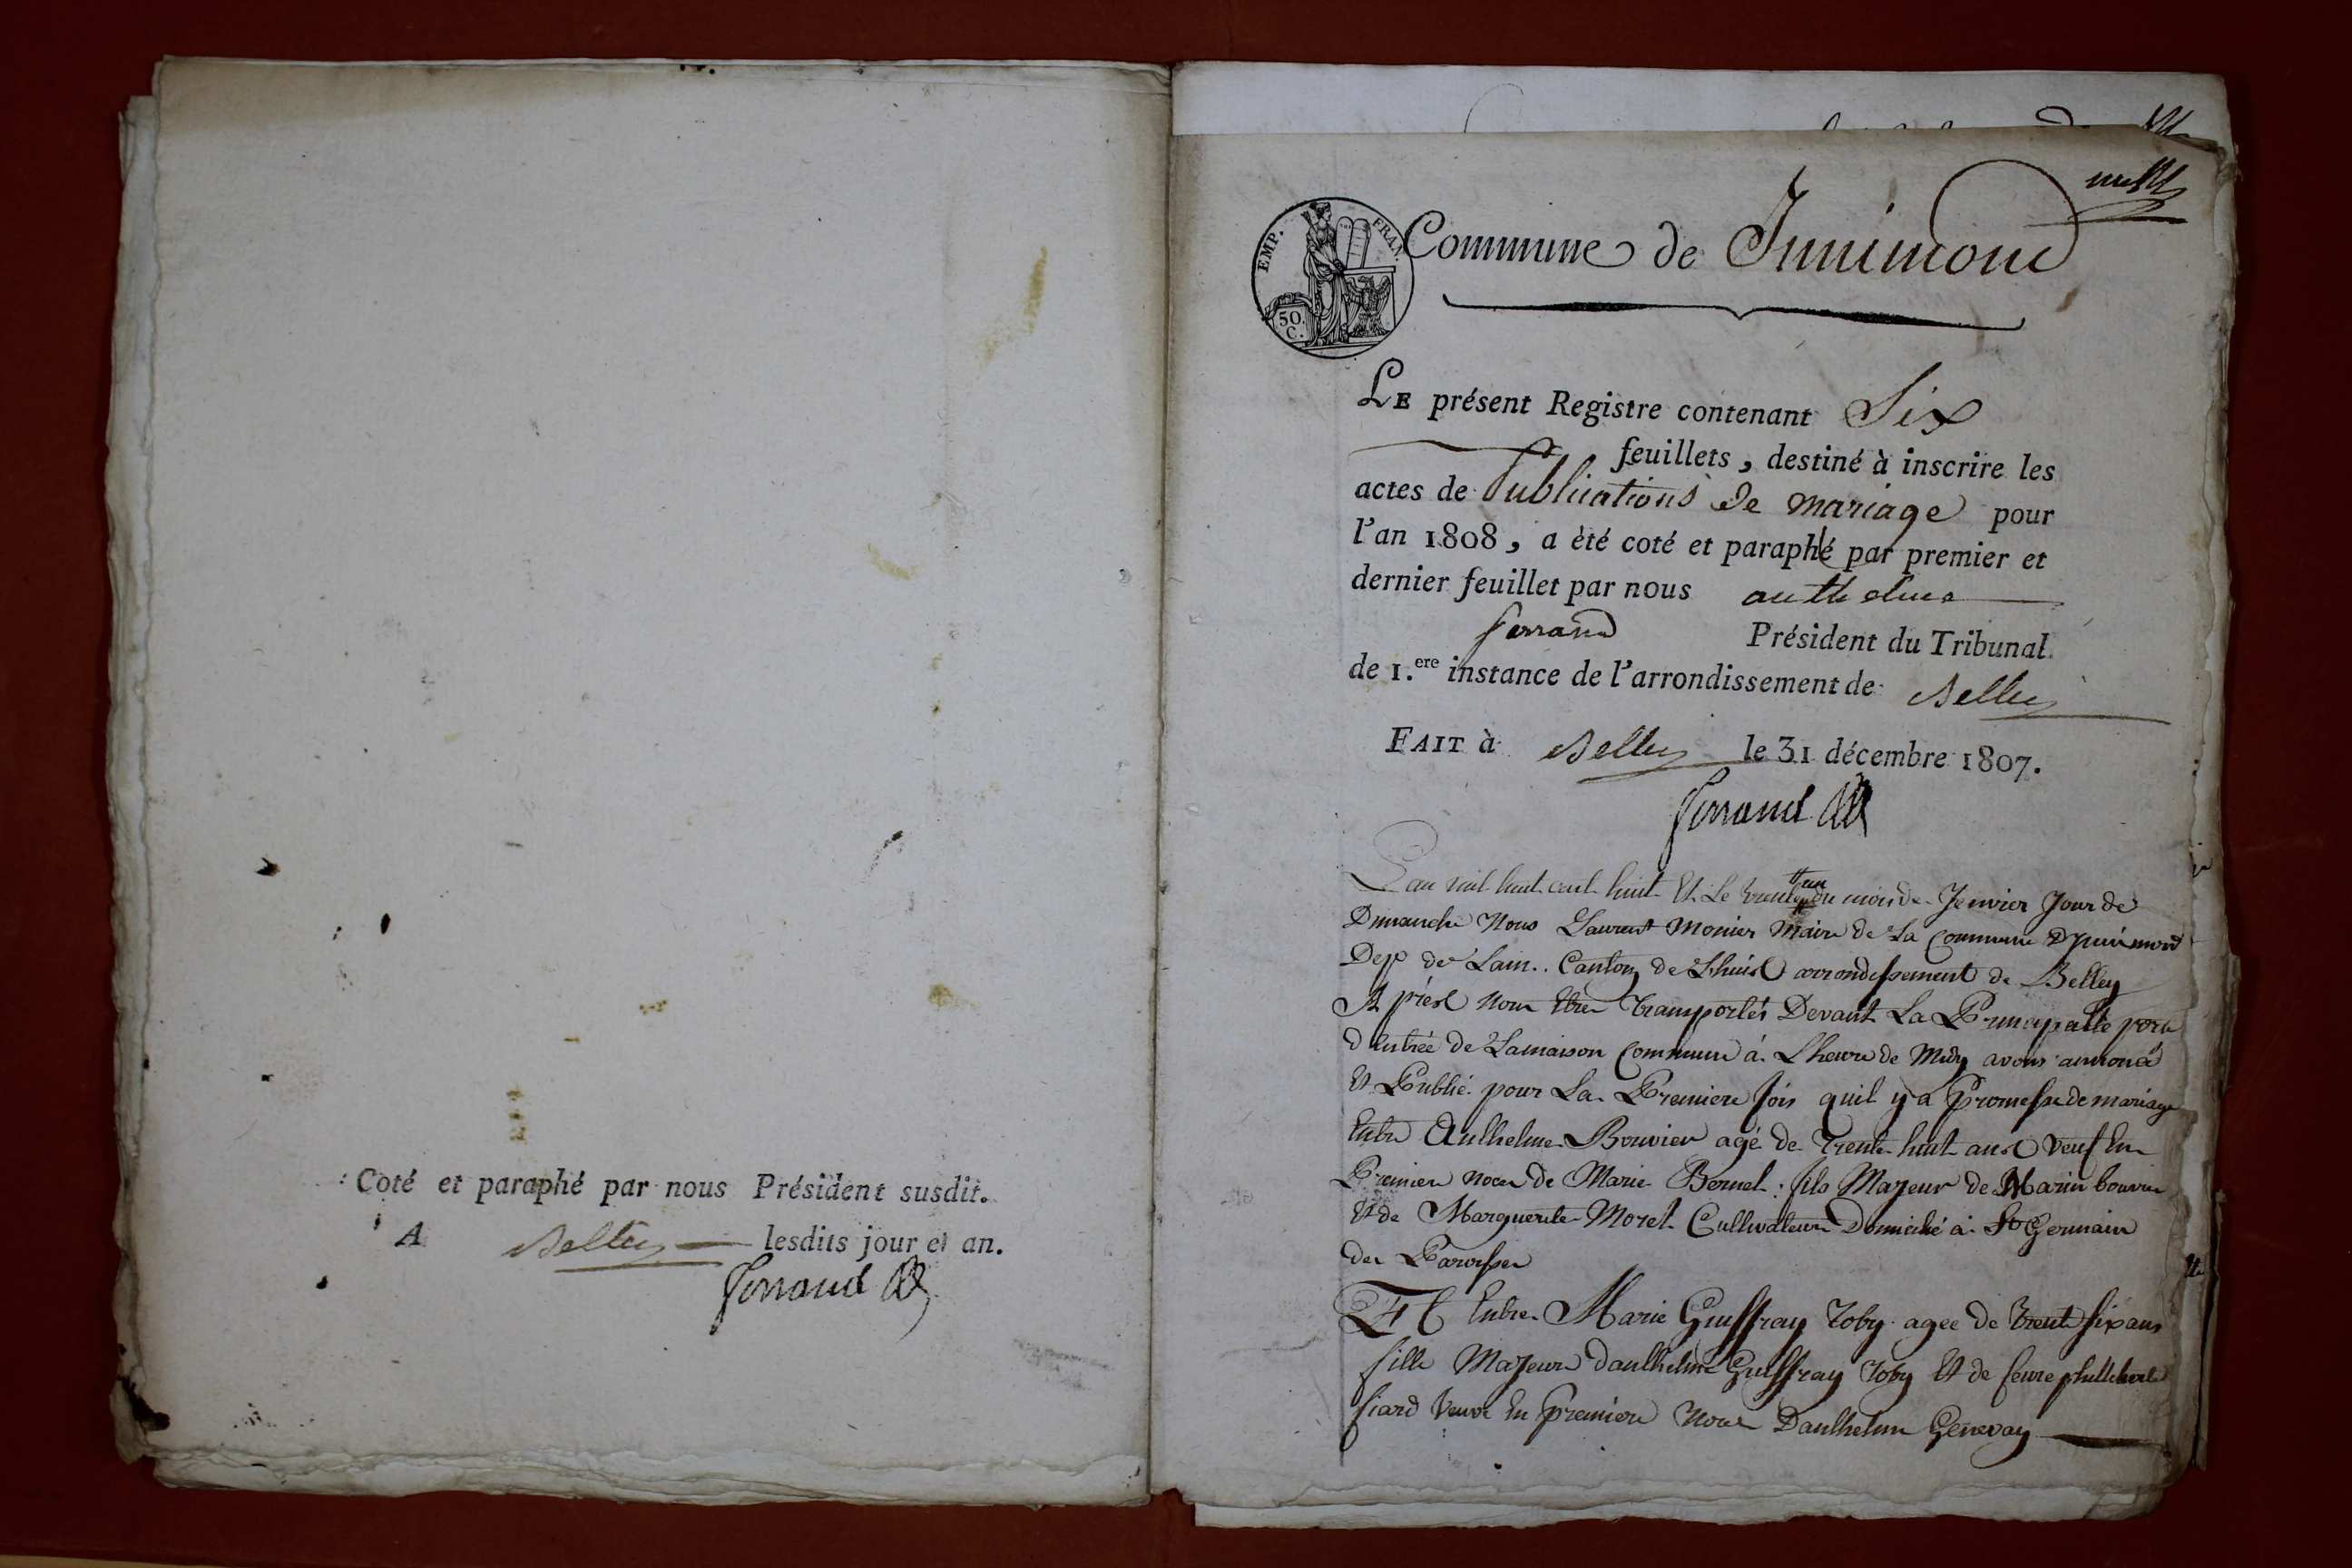 Coté et paraphé par nous Président susdit.
A Belley lesdits jour et an.
Ferrand
EMP. FRAN.
50. C.
Commune de Innimond
LE présent Registre contenant Six
feuillets, destiné à inscrire les
actes de Publications de mariage pour
l'an 1808, a èté coté et paraphé par premier et
dernier feuillet par nous anthelme
ferrand Président du Tribunal
de 1.ere instance de l'arrondissement de Belley
FAIT à Belley le 31 décembre 1807.
Ferrand
Lan mil huit cent huit Et Le trente un du mois de Jenvier Jour de
Dimanche Nous Laurent Monier Maire de La Commune Dynimond
Dep de Lain. Canton de Lhuis arrondissement de Belley
Apres nous Etre transportés Devant La Principalle porte
d Entrée de Lamaison Commune á Lheure de Midy avons annoncé
Et Publié pour La Premiere fois quil y a Promesse de mariage
Entre Anthelme Bouvier agé de Trente huit ans Veuf En
Premier noces de Marie Bernet fils Majeur de Marin bouvier
Et de Marguerite Moret Cultivateur Domicilié á St Germain
des Paroisses
Et Entre Marie Guiffray Toby agee de trente six ans
fille Majeure danthelme Guiffray Toby Et de
fiard Veuve En Premiere Noce Danthelme Genevay